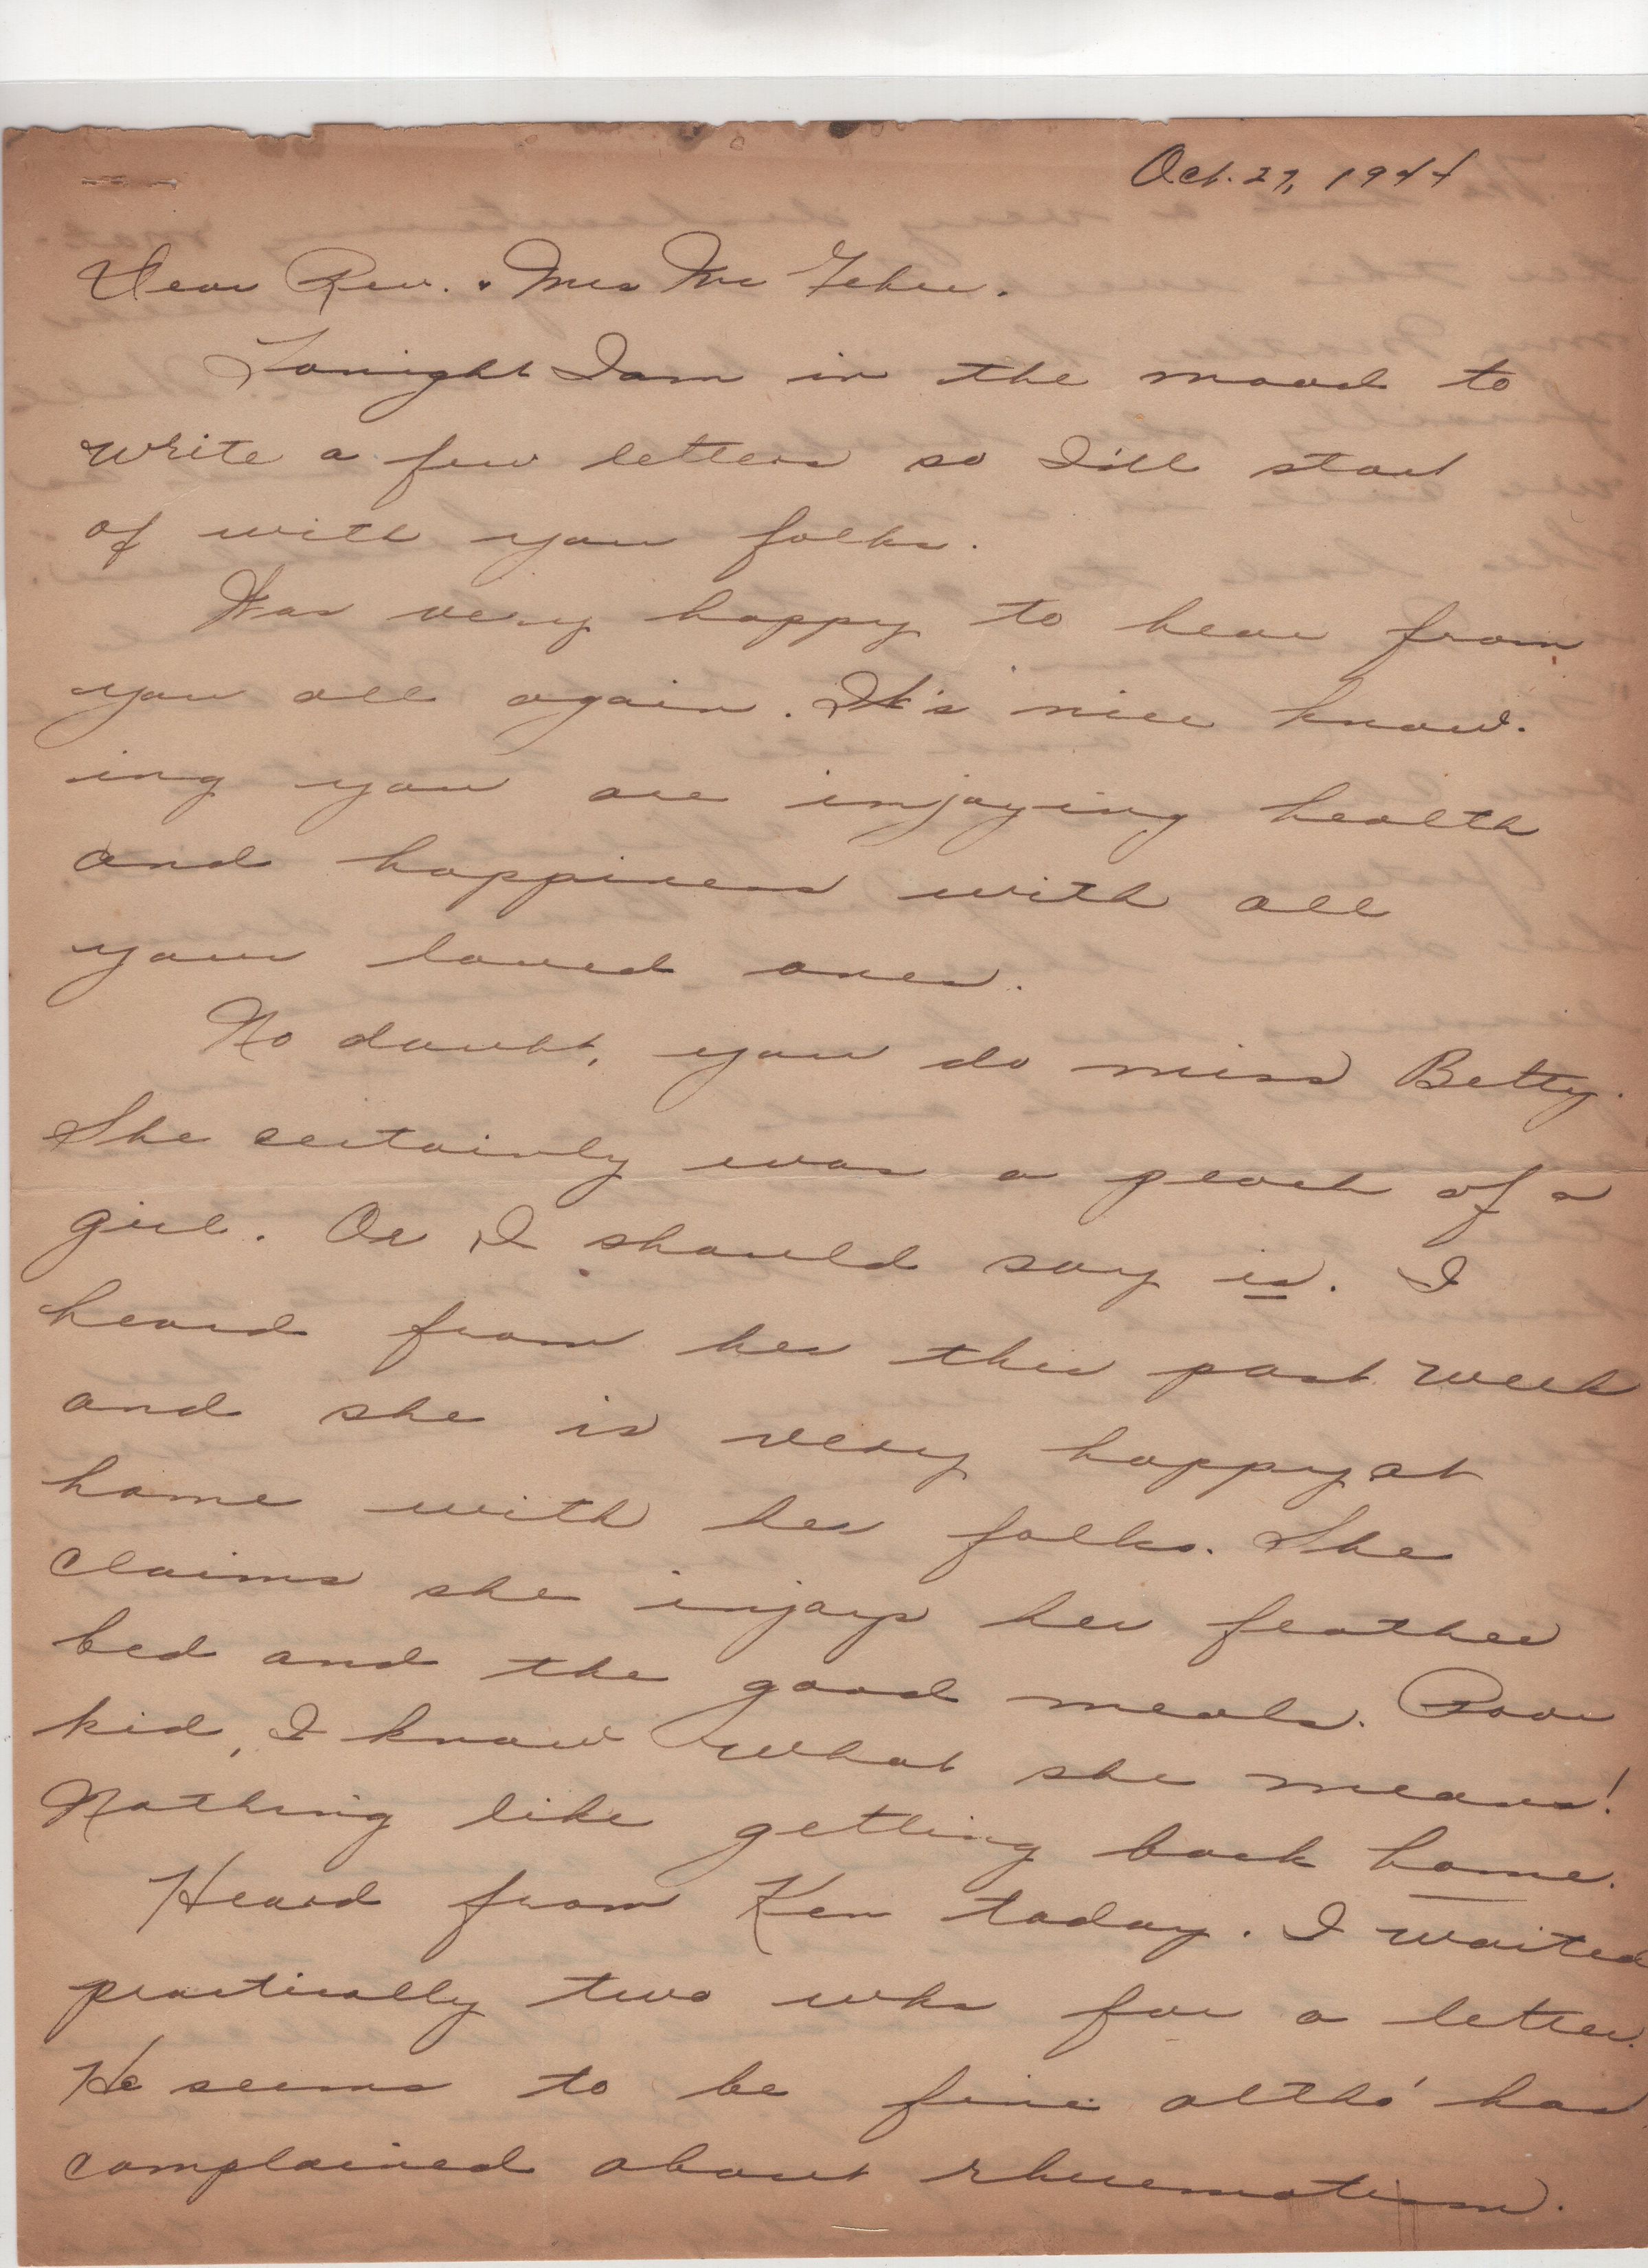 Oct. 27, 1944
Dear Rev. & Mrs Mc Gehee.
Tonight I am in the mood to
write a few letters so I'll start
of with you folks.
Was very happy to hear from
you all again. It's nice know-
ing you are injoying health
and happiness with all
your loved ones.
No doubt, you do miss Betty.
She certainly was a peach of a
girl. Or I should say is. I
heard from her this past week
and she is very happy at
home with her folks. She
claims she injoys her feather
bed and the good meals. Poor
kid, I know what she means!
Nothing like getting back home.
Heard from Ken today. I waited
practically two wks for a letter.
He seems to be fine altho' has
complained about rheumatism.